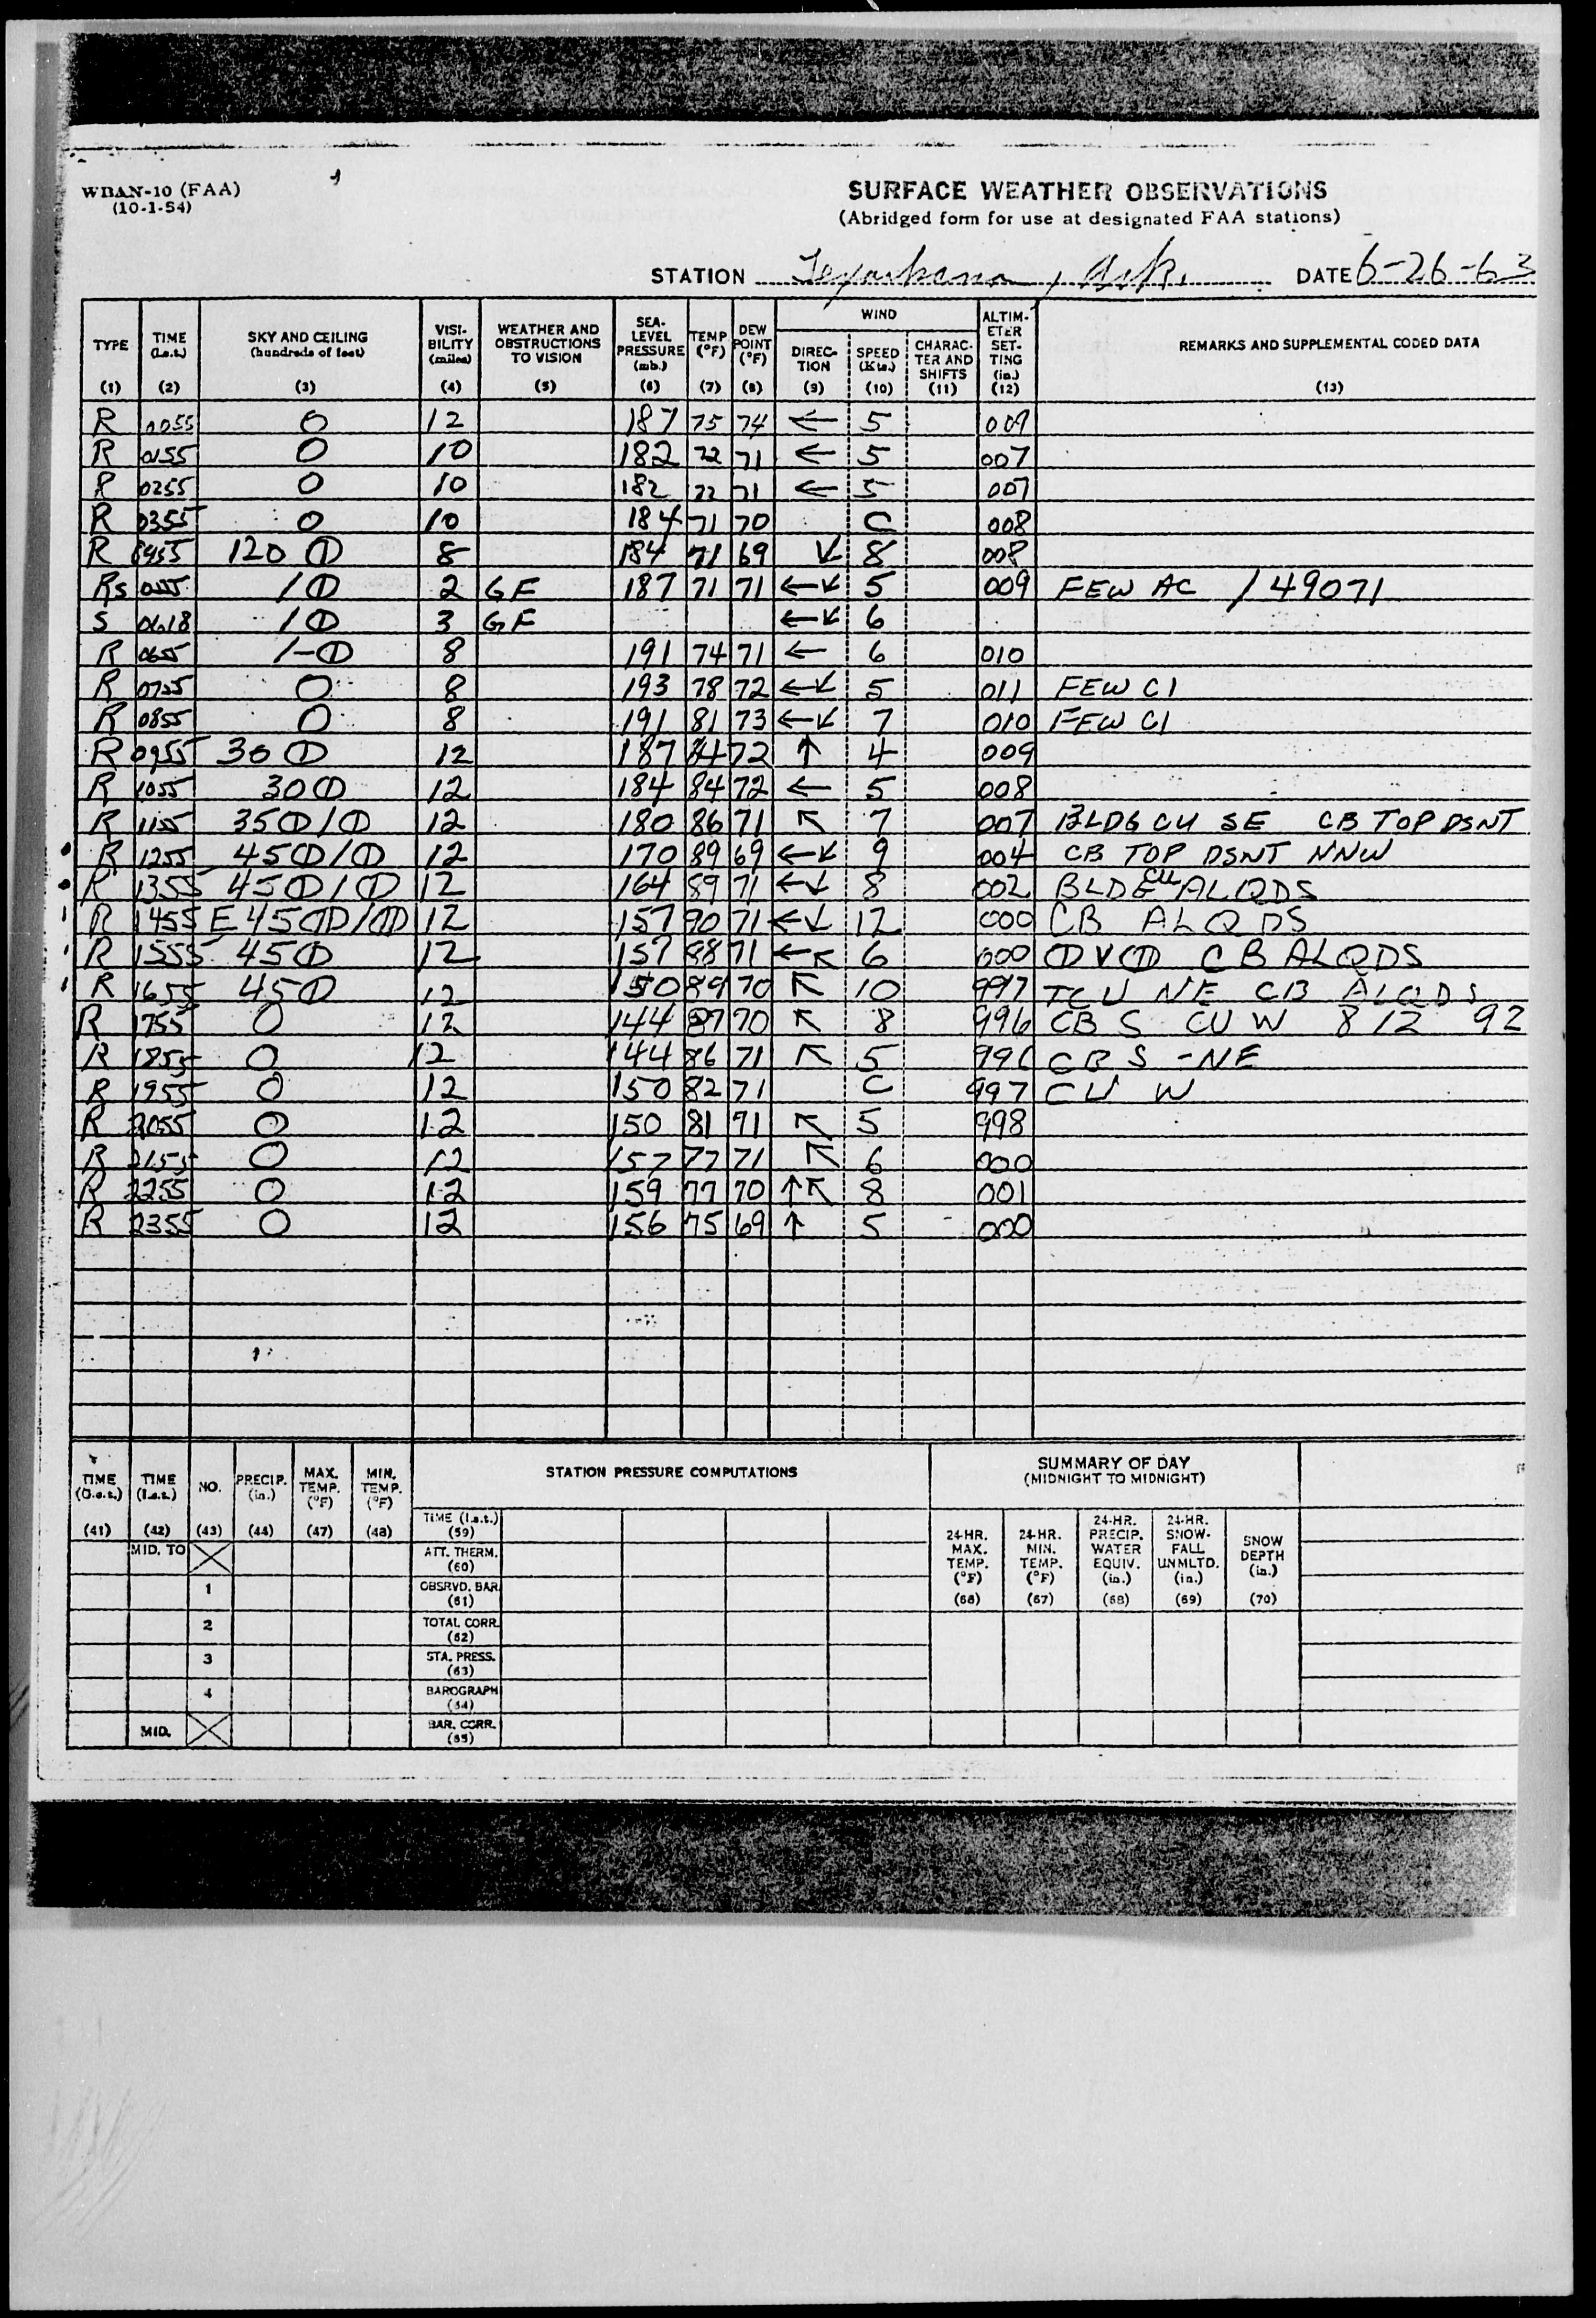 WBAN-10 (FAA)
(10-1-54)
SURFACE WEATHER OBSERVATIONS
(Abridged form for use at designated FAA stations)
STATION Texarkana, Ark. DATE 6-26-63
TYPE (1) TIME (l.s.t.) (2) SKY AND CEILING (hundreds of feet) (3) VISIBILITY (miles) (4) WEATHER AND OBSTRUCTIONS TO VISION (5) SEA-LEVEL PRESSURE (mb.) (6) TEMP (°F) (7) DEW POINT (°F) (8) WIND DIRECTION (9) SPEED (Kts.) (10) CHARACTER AND SHIFTS (11) ALTIMETER SETTING (in.) (12) REMARKS AND SUPPLEMENTAL CODED DATA (13)
R 0055 ○ 12 187 75 74 ← 5 009
R 0155 ○ 10 182 72 71 ← 5 007
R 0255 ○ 10 182 72 71 ← 5 007
R 0355 ○ 10 184 71 70 C 008
R 0455 120 ⦶ 8 184 71 69 ↙ 8 008
RS 0555 /⦶ 2 GF 187 71 71 ←↙ 5 009 FEW AC /49071
S 0618 /⦶ 3 GF ←↙ 6
R 0655 /-⦶ 8 191 74 71 ← 6 010
R 0755 ○ 8 193 78 72 ←↙ 5 011 FEW CI
R 0855 ○ 8 191 81 73 ←↙ 7 010 FEW CI
R 0955 30 ⦶ 12 187 84 72 ↑ 4 009
R 1055 30⦶ 12 184 84 72 ← 5 008
R 1155 35⦶/⦶ 12 180 86 71 ↖ 7 007 BLDG CU SE CB TOP DSNT
R 1255 45⦶/⦶ 12 170 89 69 ←↙ 9 004 CB TOP DSNT NNW
R 1355 45⦶/⦶ 12 164 89 71 ←↙ 8 002 BLDG CU ALQDS
R 1455 E45⦷/⦷ 12 157 90 71 ←↙ 12 000 CB ALQDS
R 1555 45⦶ 12 157 88 71 ←↖ 6 000 ⦶V⦷ CB ALQDS
R 1655 45⦶ 12 150 89 70 ↖ 10 997 TCU NE CB ALQDS
R 1755 ○ 12 144 87 70 ↖ 8 996 CB S CU W 812 92
R 1855 ○ 12 144 86 71 ↖ 5 996 CB S-NE
R 1955 ○ 12 150 82 71 C 997 CU W
R 2055 ○ 12 150 81 71 ↖ 5 998
R 2155 ○ 12 157 77 71 ↖ 6 000
R 2255 ○ 12 159 77 70 ↑↖ 8 001
R 2355 ○ 12 156 75 69 ↑ 5 000
TIME (G.s.t.) (41) TIME (l.s.t.) (42) NO. (43) PRECIP. (in.) (44) MAX. TEMP. (°F) (47) MIN. TEMP. (°F) (48)
STATION PRESSURE COMPUTATIONS
SUMMARY OF DAY
(MIDNIGHT TO MIDNIGHT)
TIME (l.s.t.) (59)
24-HR. MAX. TEMP. (°F) (66) 24-HR. MIN. TEMP. (°F) (67) 24-HR. PRECIP. WATER EQUIV. (in.) (68) 24-HR. SNOW-FALL UNMLTD. (in.) (69) SNOW DEPTH (in.) (70)
MID. TO ATT. THERM. (60)
1 OBSRVD. BAR. (61)
2 TOTAL CORR. (62)
3 STA. PRESS. (63)
4 BAROGRAPH (64)
MID. BAR. CORR. (65)